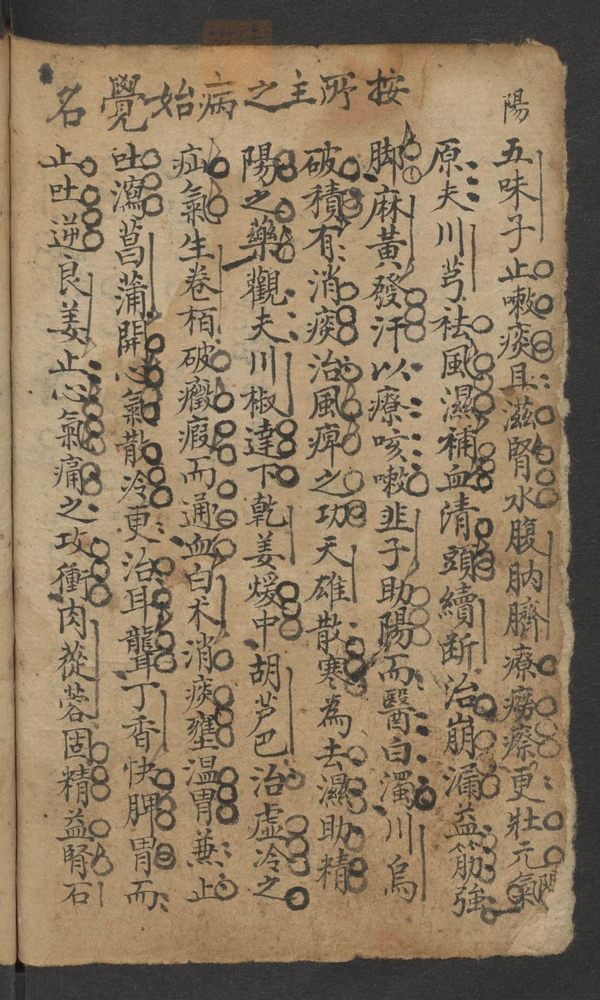 按所主之病始覺名
陽
五味子止嗽痰且滋腎水腹肭臍療癆瘵更壯元氣
原夫川芎祛風濕補血清頭續斷治崩漏益筋強
脚麻黃發汗以療咳嗽韭子助陽而醫白濁川烏
破積有消痰治風痺之功天雄散寒為去濕助精
陽之藥觀夫川椒達下乾姜煖中胡芦巴治虛冷之
疝氣生卷栢破癥瘕而通血白术消痰壅溫胃兼止
吐瀉菖蒲開心氣散冷更治耳聾丁香快脾胃而
止吐逆良姜止心氣痛之攻衝肉蓯蓉固精益腎石